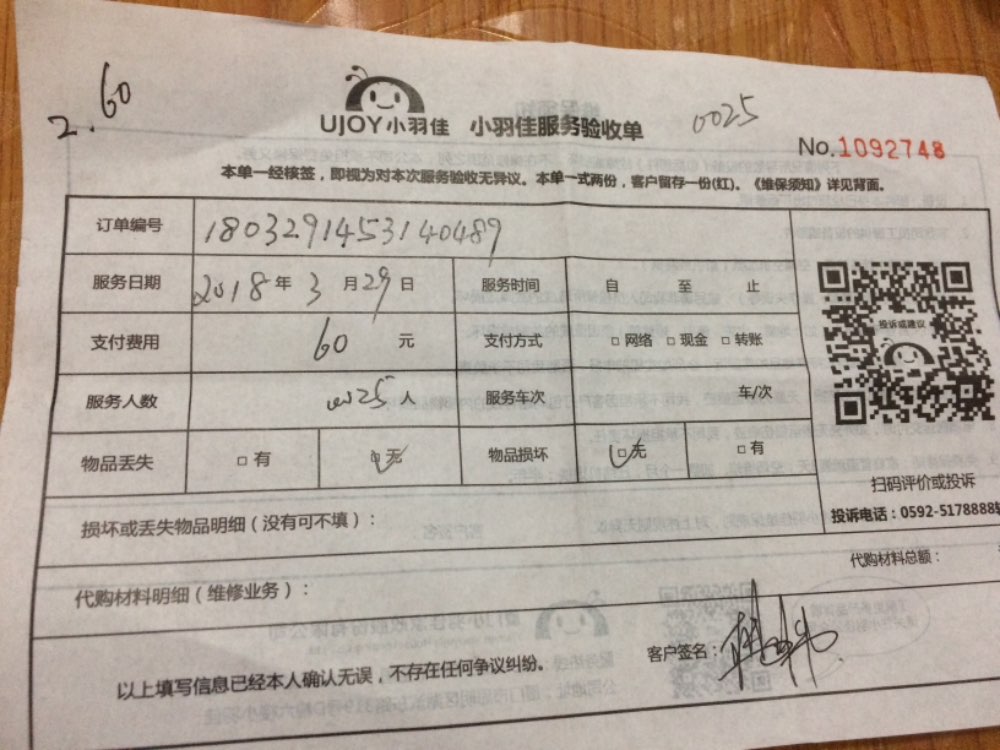 2. 60
UJOY小羽佳 小羽佳服务验收单 0025
No.1092748
本单一经核签，即视为对本次服务验收无异议。本单一式两份，客户留存一份(红)。《维保须知》详见背面。
订单编号 1803291453140489
服务日期 2018年3月29日 服务时间 自 至 止
支付费用 60 元 支付方式 □网络 □现金 □转账
投诉或建议
服务人数 0025人 服务车次 车/次
物品丢失 □有 □无 物品损坏 □无 □有
扫码评价或投诉
损坏或丢失物品明细（没有可不填）：
投诉电话：0592-5178888
代购材料总额：
代购材料明细（维修业务）：
客户签名：
以上填写信息已经本人确认无误，不存在任何争议纠纷。